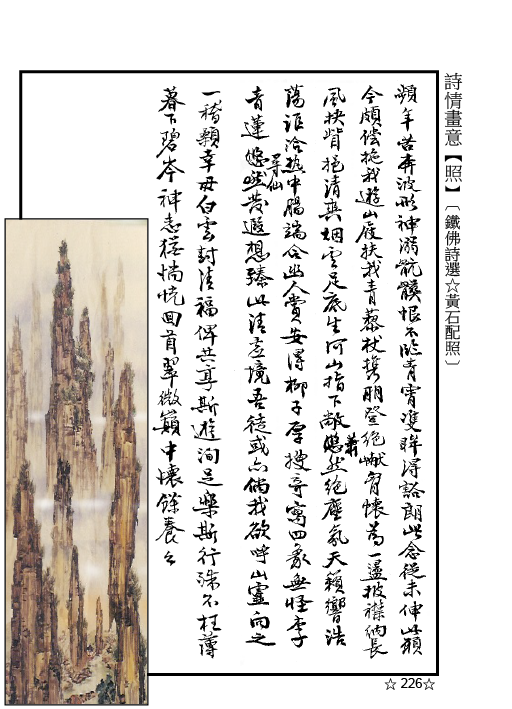 詩情畫意【照】〔鐵佛詩選☆黃石配照〕
頻年苦奔波形神溺骯髒恨不臨青霄雙眸得豁朗此念從未伸此願
今頗償拖我遊山屐扶我青藜杖攜朋登絕巘胸懷為一盪披襟納長
風抉眥挹清爽烟雲足底生河山指下敞蕭然絕塵氛天籟響浩
蕩詎洽熱中腸端合幽人賞安得柳子厚搜奇寫四象無怪李
青蓮尋仙發遐想臻此清虛境吾徒或亦倘我欲呼山靈向之
一稽顙幸毋白雲封清福俾共享斯遊洵足樂斯行殊不枉薄
暮下碧岑神志猶惝恍回首翠微巔中懷餘養々
☆ 226☆